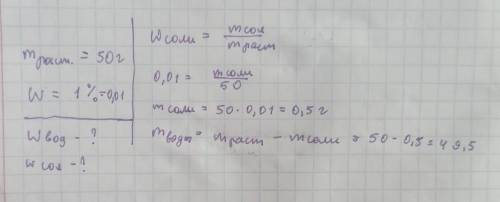 m раст. = 50 г
W = 1% = 0,01
W вод - ?
w сол - ?
W соли = m сол / m раст
0,01 = m соли / 50
m соли = 50 · 0,01 = 0,5 г
m воды = m раст - m соли = 50 - 0,5 = 49,5